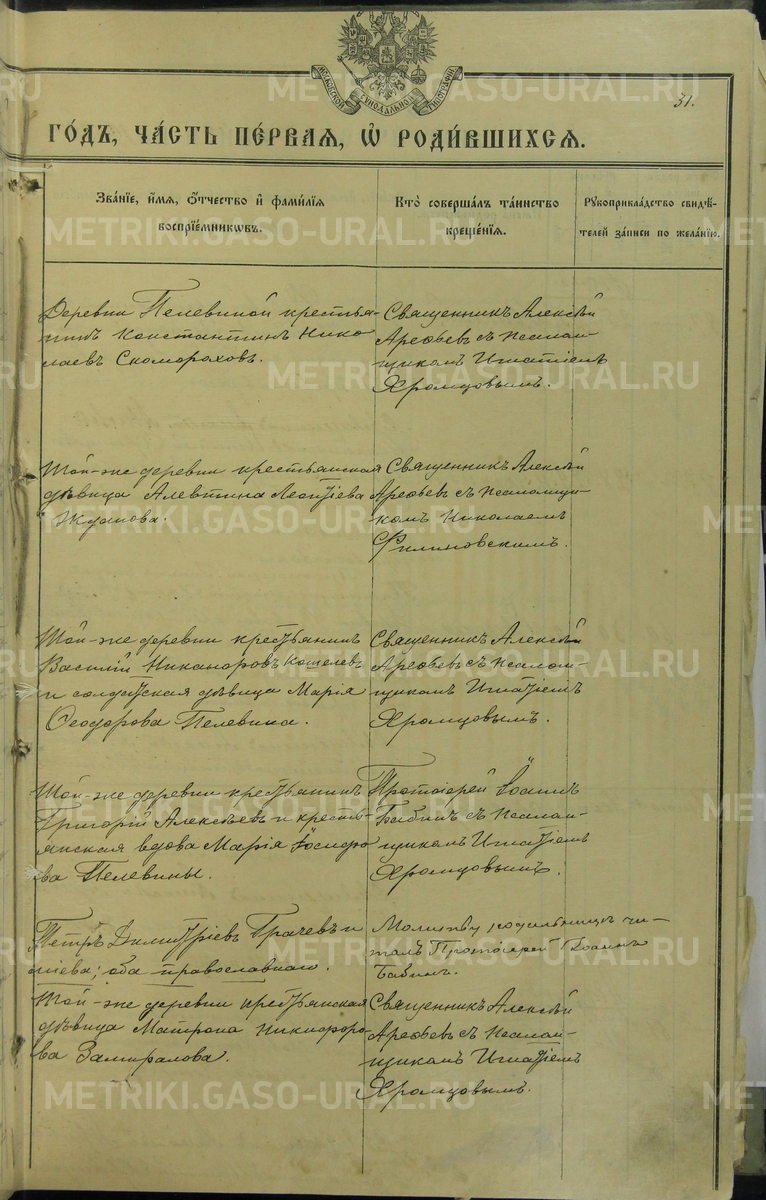 МОСКОВСКОЙ СѴНОДАЛЬНОЙ ТИПОГРАФІИ
31.
ГО́ДЪ, ЧА́СТЬ ПЕ́РВАЯ, Ѡ҆ РОДИ́ВШИХСЯ.
Зва́ніе, и҆́мя, ѻ҆́тчество и҆ фами́лія
воспріе́мникѡвъ.
Кто̀ соверша́лъ та́инство
креще́нія.
Рꙋкоприкла́дство свидѣ́-
телей за́писи по жела́нію.
Деревни Пелевиной крестья-
нинъ Константинъ Нико-
лаевъ Скомороховъ.
Священникъ Алексѣй
Арефьевъ съ псалом-
щикомъ Игнатіемъ
Хромцовымъ.
Той-же деревни крестьянская
дѣвица Алевтина Леонтіева
Жданова.
Священникъ Алексѣй
Арефьевъ съ псаломщи-
комъ Николаемъ
Филиновскимъ.
Той-же деревни крестьянинъ
Василій Никаноровъ Кошелевъ
и солдатская дѣвица Марія
Ѳеодорова Пелевина.
Священникъ Алексѣй
Арефьевъ съ псалом-
щикомъ Игнатіемъ
Хромцовымъ.
Той-же деревни крестьянинъ
Григорій Алексѣевъ и кресть-
янская вдова Марія
ва Пелевины.
Протоіерей Іоаннъ
Бабинъ съ псалом-
щикомъ Игнатіемъ
Хромцовымъ.
Петръ Димитріевъ Грачевъ и
оба православнаго.
Молитву родильницѣ чи-
талъ Протоіерей Іоаннъ
Бабинъ.
Той-же деревни крестьянская
дѣвица Матрона Никифоро-
ва Замиралова.
Священникъ Алексѣй
Арефьевъ съ псалом-
щикомъ Игнатіемъ
Хромцовымъ.
METRIKI.GASO-URAL.RU